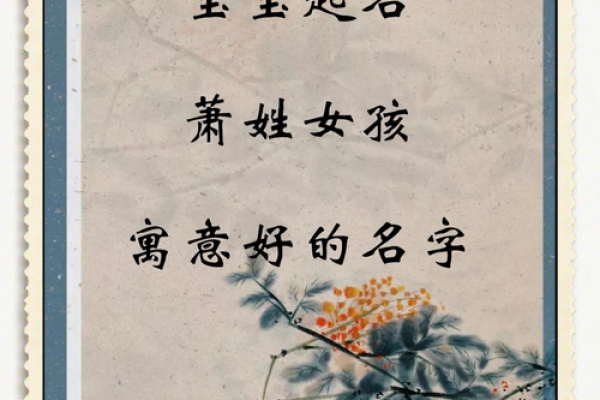 宝宝起名
萧姓女孩
寓意好的名字